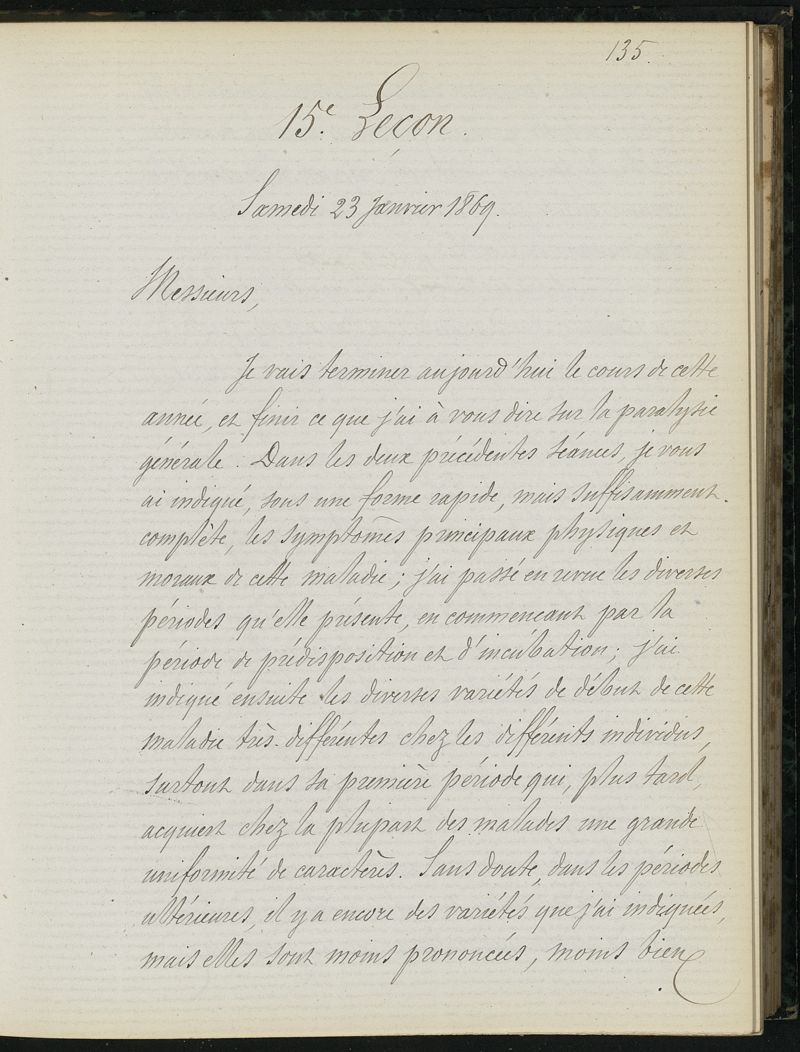 135.
15.e Leçon.
Samedi 23 Janvier 1869.
Messieurs,
Je vais terminer aujourd'hui le cours de cette
année, et finir ce que j'ai à vous dire sur la paralysie
générale. Dans les deux précédentes séances, je vous
ai indiqué, sous une forme rapide, mais suffisamment
complète, les symptomes principaux physiques et
moraux de cette maladie; j'ai passé en revue les diverses
périodes qu'elle présente, en commencant par la
période de prédisposition et d'incubation; j'ai
indiqué ensuite les diverses variétés de début de cette
maladie très-différentes chez les différents individus,
surtout dans sa première période qui, plus tard,
acquiert chez la plupart des malades une grande
uniformité de caractères. Sans doute, dans les périodes
ultérieures, il y a encore des variétés que j'ai indiquées,
mais elles sont moins prononcées, moins bien